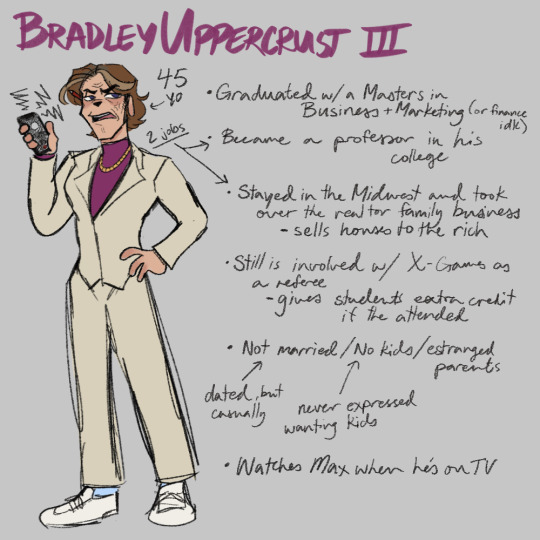 BRADLEY UPPERCRUST III
45
yo
2 jobs
• Graduated w/a Masters in
Business + Marketing (or finance
idk)
• Became a professor in his
college
• Stayed in the Midwest and took
over the realtor family business
- sells houses to the rich
• Still is involved w/ X-Games as
a referee
- gives students extra credit
if the attended
• Not married/No kids/estranged
parents
dated, but
casually
never expressed
wanting kids
• Watches Max when he's on TV